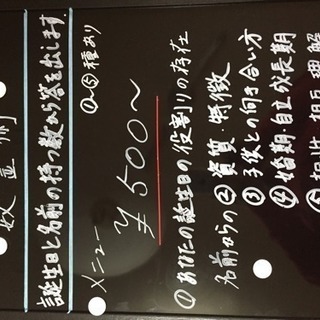 誕生日と名前の持つ数から答を出します
メニュー
①〜⑤種あり
￥500〜
①あなたの誕生日の(役割)の存在
名前からの②資質・特徴
③子供との向き合い方
④婚期 自立 成長期
⑤相性 相互理解